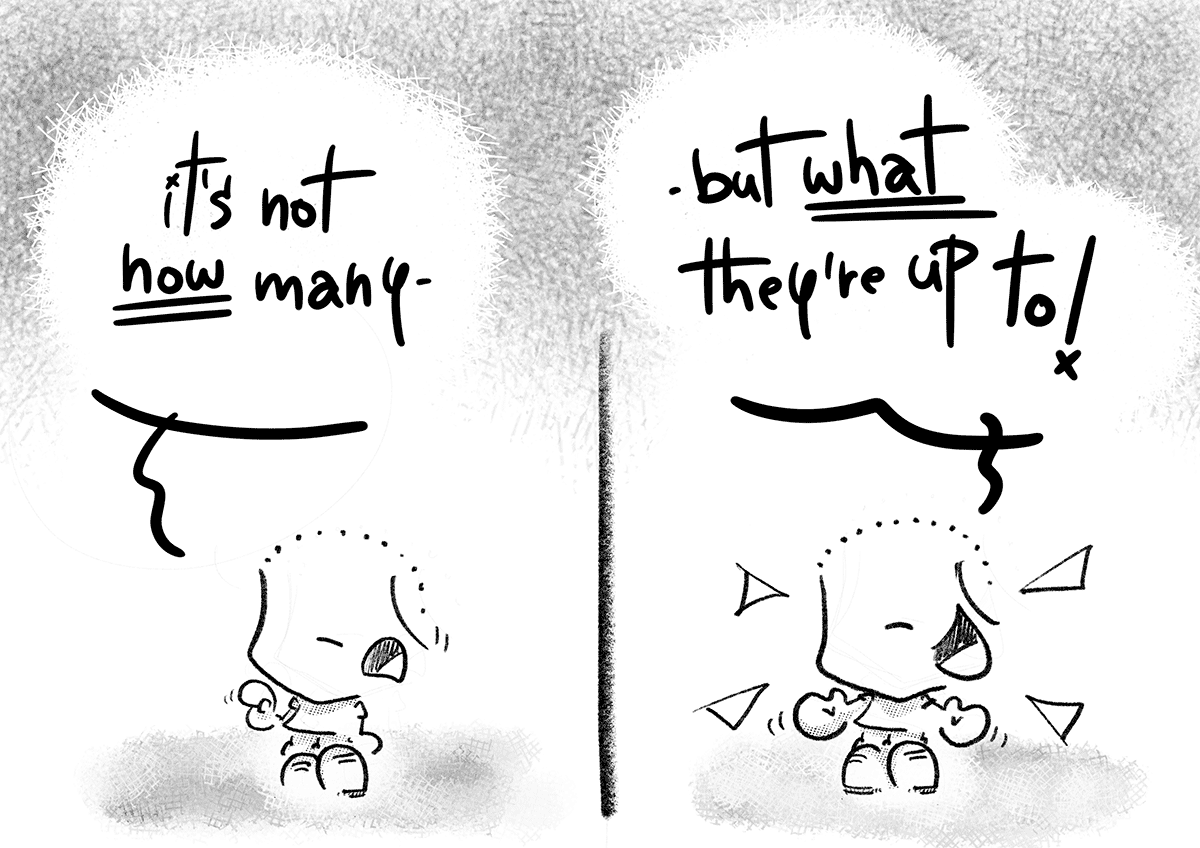 it's not
how many-
-but what
they're up to!